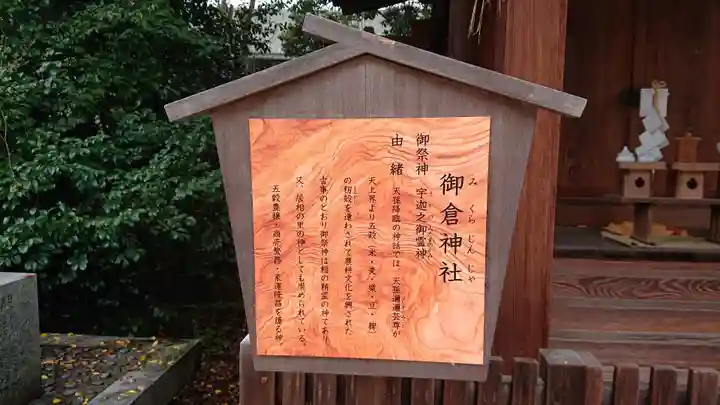 御倉神社
みくらじんじゃ
御祭神 宇迦之御霊神
由緒 天孫降臨の神話では 天孫邇邇芸尊が
天上界より五穀(米・麦・粟・豆・稗)
の籾殻を遣わされて農耕文化を興された
古事のとおり御祭神は稲の精霊の神であり
又、居相の里の神としても崇められている。
五穀豊穣・商売繁昌・家運隆昌を護る神